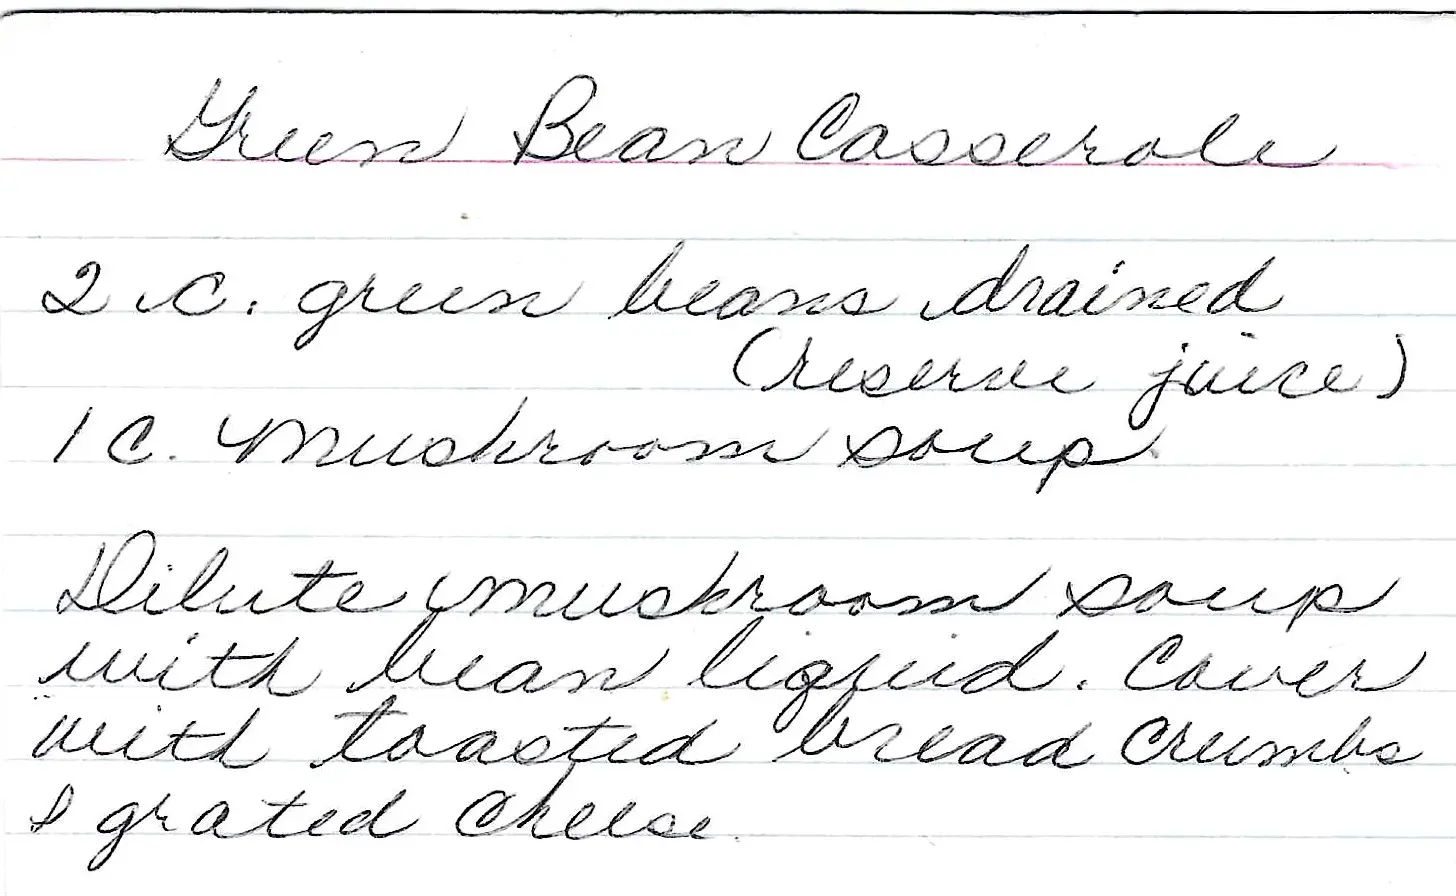 Green Bean Casserole
2 c. green beans drained
(reserve juice)
1 c. mushroom soup
Dilute mushroom soup
with bean liquid. Cover
with toasted bread crumbs
& grated cheese.